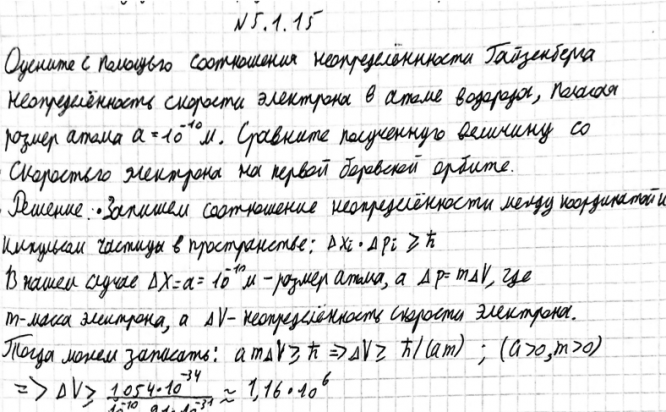 №5.1.15
Оцените с помощью соотношения неопределённости Гайзенберга
неопределённость скорости электрона в атоме водорода, полагая
размер атома a = 10⁻¹⁰ м. Сравните полученную величину со
скоростью электрона на первой боровской орбите.
Решение: • Запишем соотношение неопределённости между координатой и
импульсом частицы в пространстве: Δxi · Δpi ≥ ħ
В нашем случае ΔX = a = 10⁻¹⁰ м – размер атома, а Δp = mΔV, где
m-масса электрона, а ΔV- неопределённость скорости электрона.
Тогда можем записать: a m ΔV ≥ ħ => ΔV ≥ ħ/(am) ; (a>0, m>0)
=> ΔV ≥ 1,054·10⁻³⁴ / 10⁻¹⁰ · 9,1·10⁻³¹ ≈ 1,16·10⁶